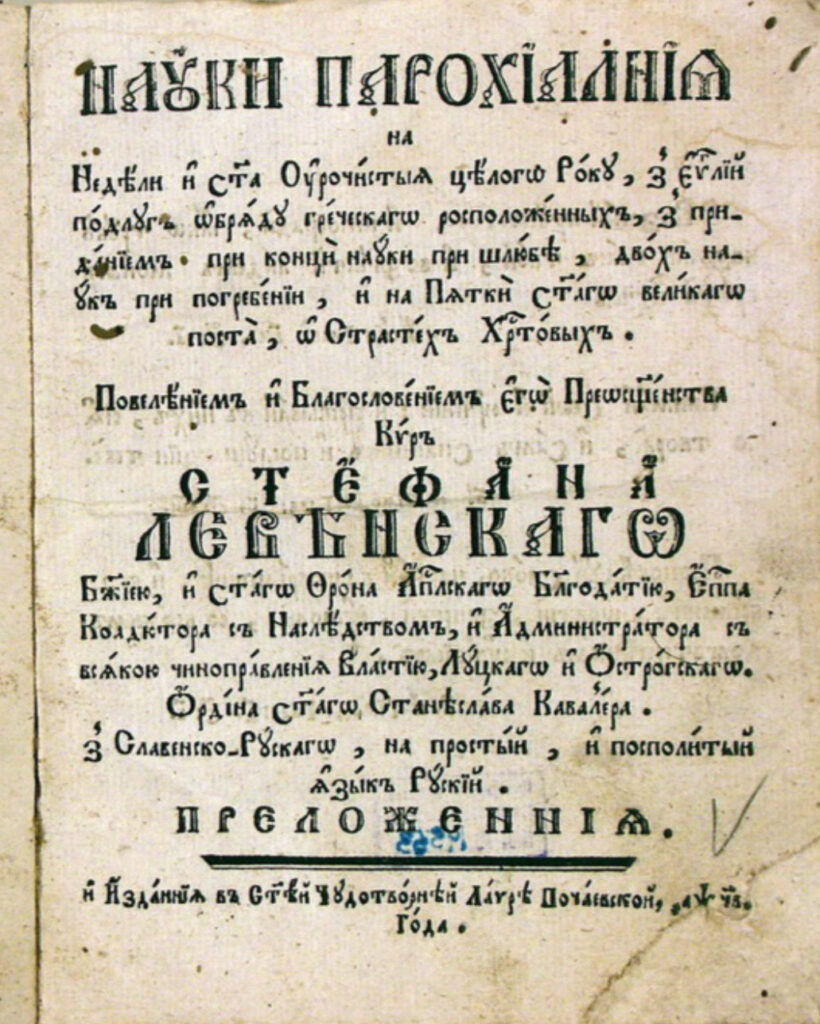 НАꙊКИ ПАРОХЇАЛНЇѦ
на
Недѣ́ли и҆ ст҃а Оу҆рочи́стыѧ цѣ́логѡ Ро́кꙋ, з̾ Еѵ҆лїй
по́длꙋгъ ѡ҆брѧ́дꙋ гре́ческагѡ росположе́нныхъ, з̾ при-
да́нїемъ при концѝ наꙋки при шлю́бѣ, дво́хъ на-
ꙋкъ при погребе́нїи, и҆ на Пѧткѝ ст҃а́гѡ вели́кагѡ
поста̀, ѡ҆ Страсте́хъ Хрⷭ҇то́выхъ.
Повелѣ́нїемъ и҆ Благослове́нїемъ є҆гѡ̀ Преѡсщ҃е́нства
Кѵ́ръ
СТЕ́ФАНА
ЛЕВѢНСКАГѠ
Бж҃їею, и҆ ст҃а́гѡ Ѳро́на А҆пⷭ҇лскагѡ Бл҃года́тїю, Е҆пⷭ҇па
Коадю́тора съ Наслѣ́дствомъ, и҆ А҆дминистра́тора съ
всѧ́кою чинопра́вленїѧ Вла́стїю, Лꙋ́цкагѡ и҆ Ѻ҆стро́гскагѡ.
Ѻ҆рде́на ст҃а́гѡ Станѣсла́ва Кавале́ра.
з̾ Славенско-Рꙋ́скагѡ, на просты́й, и҆ посполи́тый
ѧ҆зы́къ Рꙋ́скїй.
ПРЕЛОЖЕННІѦ.
и҆ И҆зда́ннїѧ въ Ст҃ѣ́й Чꙋдотво́рнѣй Ла́ѵрѣ Поча́евской, ҂аѱ҃чв.
Го́да.